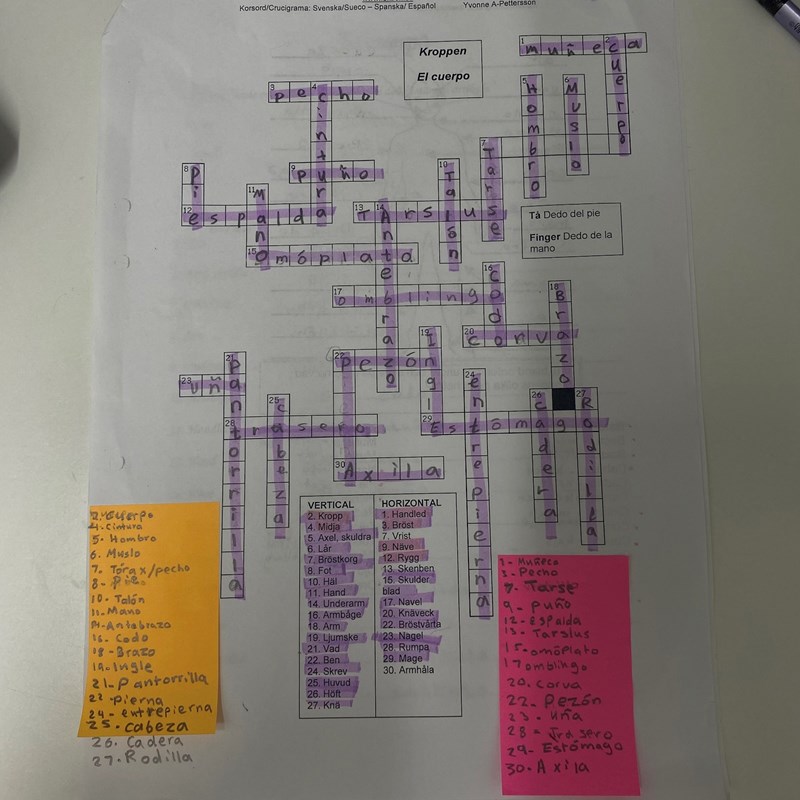 Korsord/Crucigrama: Svenska/Sueco – Spanska/ Español Yvonne A-Pettersson
Kroppen
El cuerpo
1 muñeca
2 cuerpo
3 pecho
4 cintura
5 Hombro
6 Muslo
7 Tarse
8 Pie
9 puño
10 Talón
11 Mano
12 espalda
13 Tarsus
14 Antebrazo
15 omóplata
16 Codo
17 omblingo
18 Brazo
19 Ingl
20 corva
21 Pantorrilla
22 Pezón
23 uñ
24 entrepierna
25 cabeza
26 cadera
27 Rodilla
28 trasero
29 Estómago
30 Axila
Tå Dedo del pie
Finger Dedo de la
mano
VERTICAL
2. Kropp
4. Midja
5. Axel, skuldra
6. Lår
7. Bröstkorg
8. Fot
10. Häl
11. Hand
14. Underarm
16. Armbåge
18. Arm
19. Ljumske
21. Vad
22. Ben
24. Skrev
25. Huvud
26. Höft
27. Knä
HORIZONTAL
1. Handled
3. Bröst
7. Vrist
9. Näve
12. Rygg
13. Skenben
15. Skulder
blad
17. Navel
20. Knäveck
22. Bröstvårta
23. Nagel
28. Rumpa
29. Mage
30. Armhåla
2. Cuerpo
4. Cintura
5. Hombro
6. Muslo
7. Tórax/pecho
8- Pie
10. Talón
11- Mano
14- Antebrazo
16. Codo
18- Brazo
19- Ingle
21- Pantorrilla
22- Pierna
24- entrepierna
25. cabeza
26. Cadera
27. Rodilla
1- Muñeca
3- Pecho
7- Tarse
9- puño
12- Espalda
13- Tarslus
15- omóplato
17 omblingo
20. Corva
22. Pezón
23- uña
28- Trasero
29- Estómago
30. Axila